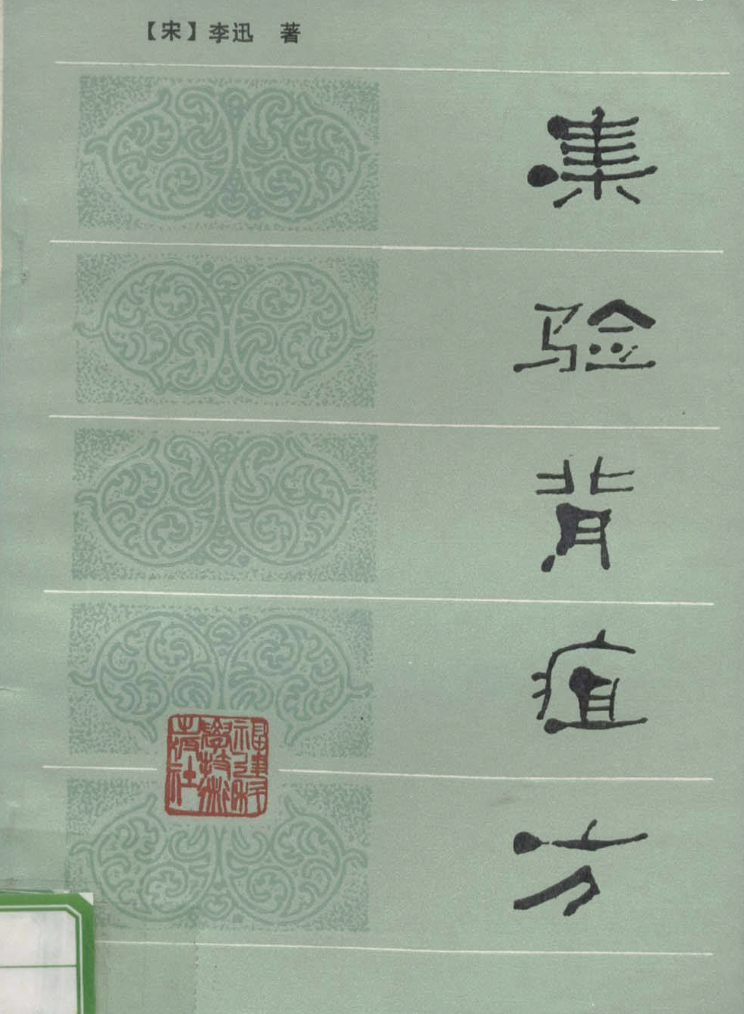 【宋】李迅 著
集
验
背
疽
方
福建科
学技术
出版社